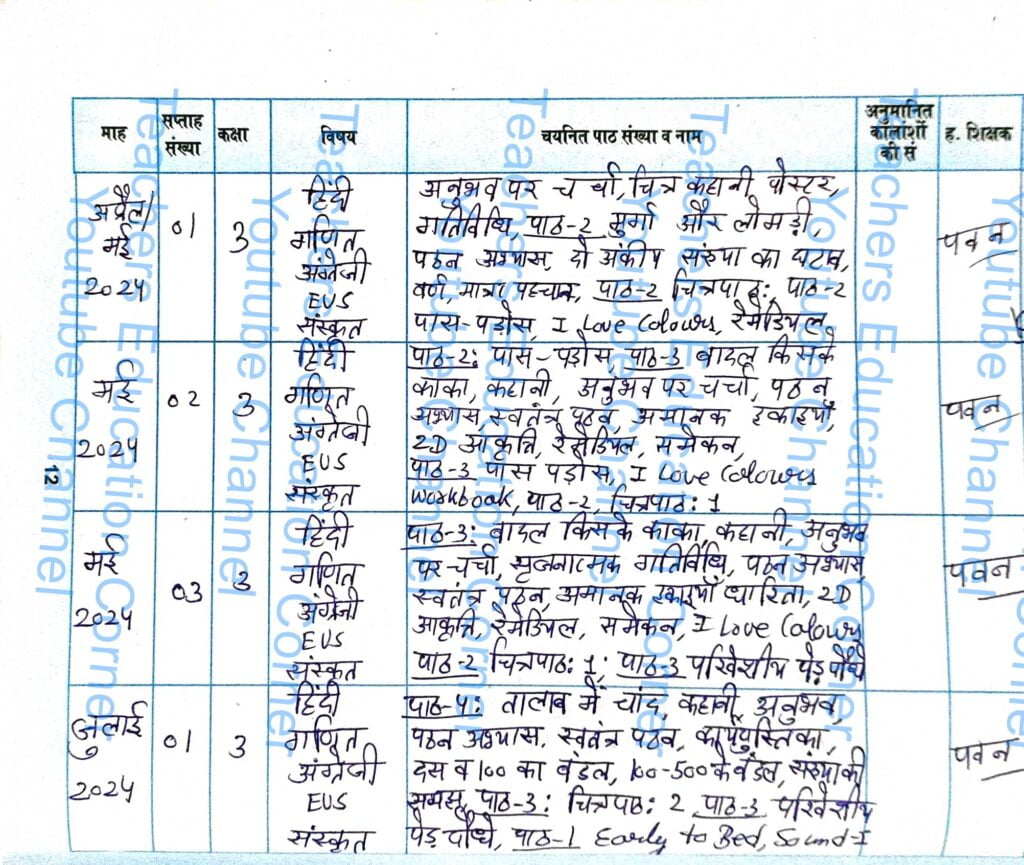 माह सप्ताह संख्या कक्षा विषय चयनित पाठ संख्या व नाम अनुमानित कालांशों की सं ह. शिक्षक
अप्रैल/ मई 2024 01 3 पवन
हिंदी
गणित
अंग्रेजी
EVS
संस्कृत
अनुभव पर चर्चा, चित्र कहानी, पोस्टर,
गतिविधि, पाठ-2 मुर्गा और लोमड़ी,
पठन अभ्यास, दो अंकीय संख्या का घटाव,
वर्ण, मात्रा पहचान, पाठ-2 चित्रपाठ: पाठ-2
पास-पड़ोस, I Love Colours, रेमेडियल
मई 2024 02 3 पवन
हिंदी
गणित
अंग्रेजी
EVS
संस्कृत
पाठ-2: पास-पड़ोस, पाठ-3 बादल किसके
काका, कहानी, अनुभव पर चर्चा, पठन
अभ्यास, स्वतंत्र पठन, अमानक इकाइयाँ,
2D आकृति, रेमेडियल, समेकन,
पाठ-3 पास पड़ोस, I Love Colours
Workbook, पाठ-2, चित्रपाठ: 1
मई 2024 03 3 पवन
हिंदी
गणित
अंग्रेजी
EVS
संस्कृत
पाठ-3: बादल किसके काका, कहानी, अनुभव
पर चर्चा, सृजनात्मक गतिविधि, पठन अभ्यास,
स्वतंत्र पठन, अमानक इकाइयाँ धारिता, 2D
आकृति, रेमेडियल, समेकन, I Love Colours
पाठ-2 चित्रपाठ: 1; पाठ-3 परिवेशीय पेड़ पौधे
जुलाई 2024 01 3 पवन
हिंदी
गणित
अंग्रेजी
EVS
संस्कृत
पाठ-4: तालाब में चांद, कहानी, अनुभव,
पठन अभ्यास, स्वतंत्र पठन, कार्यपुस्तिका,
दस व 100 का बंडल, 100-500 के बंडल, संख्या की
समझ, पाठ-3: चित्रपाठ: 2 पाठ-3 परिवेशीय
पेड़ पौधे, पाठ-1 Early to Bed, Sound-I
12
Teachers Education Corner
Youtube Channel
Teachers Education Corner
Youtube Channel
Teachers Education Corner
Youtube Channel
Teachers Education Corner
Youtube Channel
Teachers Education Corner
Youtube Channel